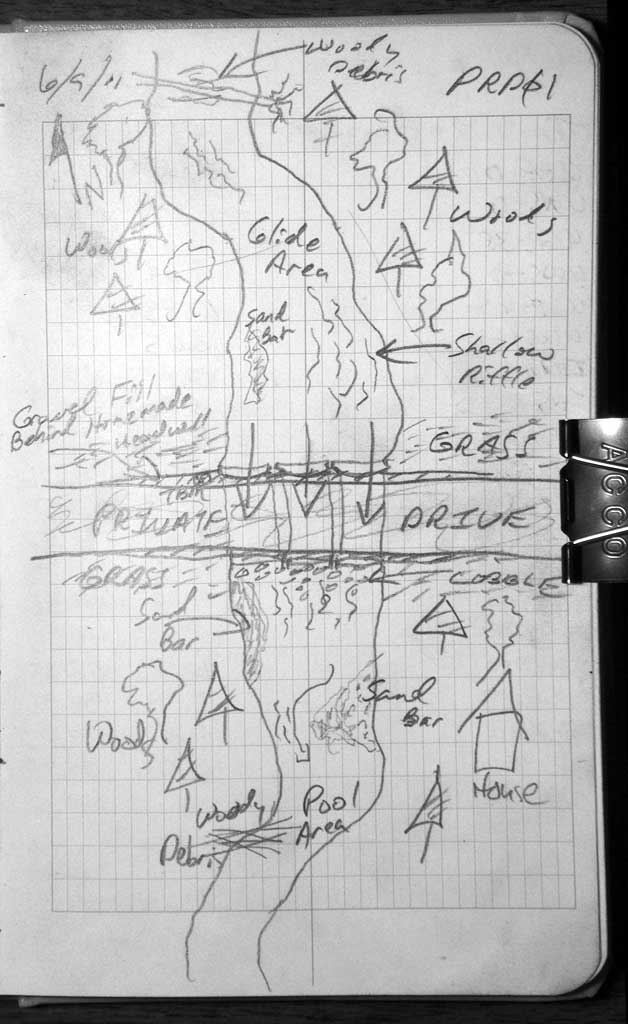 6/9/11
Woody
Debris
PRP61
N
Woods
Woods
Glide
Area
Sand
Bar
Shallow
Riffle
Gravel Fill
Behind Homemade
Headwall
GRASS
PRIVATE DRIVE
GRASS
COBBLE
Sand
Bar
Sand
Bar
Woods
House
Woody
Debris
Pool
Area
ACCO